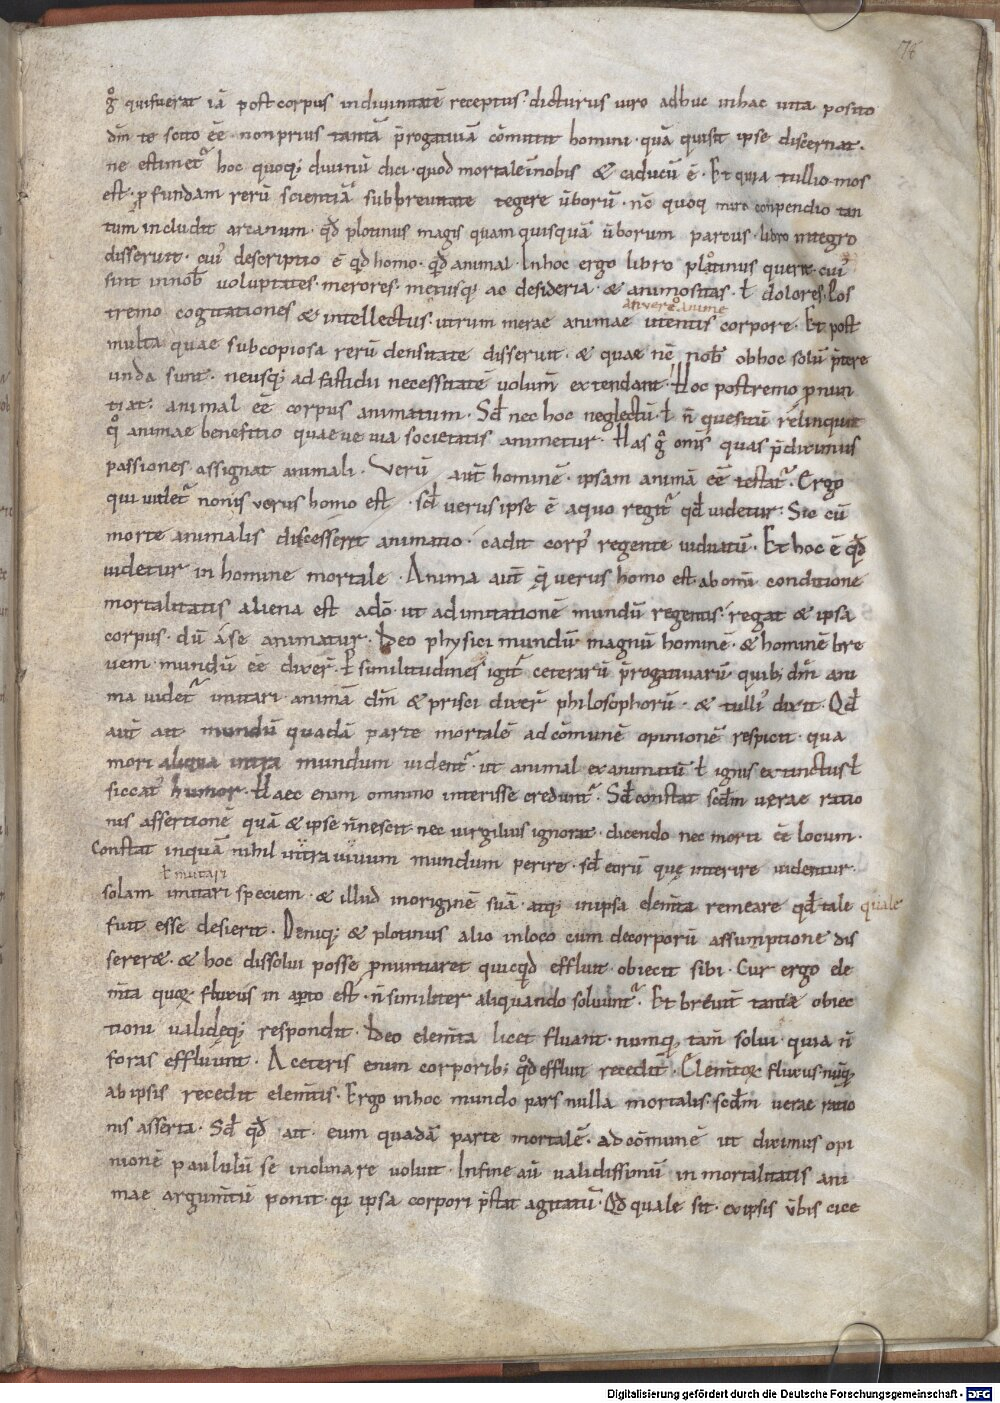 76
g̊ qui fuerat iā post corpus in divinitatē receptus · dicturus viro adhuc in hac vita posito
dm̄ te scito ēē · non prius tantā p̄rogativā cōmittit homini · quā qui sit ipse discernat ·
ne estimet᷑ hoc quoq; divinū dici · quod mortale ī nobis & caducū ē · Et quia tullio mos
est · ꝓfundam rerū scientiā sub brevitate tegere ūborū · nē quoq miro conpendio tan
tum includit arcanum · qd̄ plotinus magis quam quisquā ūborum parcus · libro integro
disseruit · cuiꝰ descriptio ē qd homo · qd̄ animal · In hoc ergo libro plotinus querit · cuiꝰ
sint in nob̄ voluptates · merores · metusq; ac desideria · & animositas · ł dolores · Pos
an vere animę
tremo cogitationes & intellectus · utrum merae animae utentis corpore · Et post
multa quae sub copiosa rerū densitate disseruit · & quae nē nob̄ ob hoc solū p̄tere
unda sunt · ne usq; ad fastidii necessitatē volum̄ extendant · Hoc postremo ꝓnun
tiat · animal ēē corpus animatum · Sed̄ nec hoc neglectū · ł n̄ quesitū relinquit
q̊ animae benefitio quaeve via societatis animetur · Has g̊ om̄s quas p̄diximus
passiones assignat animali · Verū aut̄ hominē · ipsam animā ēē testat᷑ · Ergo
qui videt᷑ non is verus homo est · sed̄ verus ipse ē a quo regit᷑ qd̄ videtur · Sic cū
morte animalis discesserit animatio · cadit corpꝰ regente viduatū · Et hoc ē qd̄
videtur in homine mortale · Anima aut̄ q̄ verus homo est ab omī conditione
mortalitatis aliena est adō · ut ad imitationē mundū regentis · regat & ipsa
corpus · dū a se animatur · Ideo physici mundū magnū hominē · & hominē bre
vem mundū ēē dixer̄ · P similitudines igit᷑ ceterarū p̄rogativarū · quib; dm̄ ani
ma videt᷑ imitari · animā dm̄ & prisci dixer̄ philosophorū · & tulliꝰ dixit · Qd̄
aut̄ ait mundū quadā parte mortalē ad cōmunē opinionē respicit · qua
mori aliqua intra mundum vident᷑ · ut animal exanimatū ł ignis extinctus ł
siccatꝰ humor · Haec enim omnino interisse credunt᷑ · Sed̄ constat scd̄m verae ratio
nis assertionē quā & ipse n̄ nescit nec virgilius ignorat · dicendo nec morti ēē locum ·
Constat inquā nihil intra vivum mundum perire · sed̄ eorū quę interire videntur ·
ł mutari
solam imitari speciem · & illud in originē suā · atq; in ipsa elem̄ta remeare qd̄ tale quale
fuit esse desierit · Deniq; & plotinus alio in loco cum de corporū assumptione dis
sereret · & hoc dissolvi posse ꝓnuntiaret quicqd effluit · obiecit sibi · Cur ergo ele
m̄ta quoꝝ fluxus in aꝑto est · n̄ similiter aliquando solvunt᷑ · Et brevit̄ tantae obiec
tioni valideq; respondit · Ideo elem̄ta licet fluant · numq; tam̄ solvi · quia n̄
foras effluunt · A ceteris enim corporib; qd̄ effluit recedit · Elem̄toꝝ fluxus nūq;
ab ipsis recedit elem̄tis · Ergo in hoc mundo pars nulla mortalis · scd̄m verae ratio
nis asserta · Sed̄ qd̄ ait · eum quadā parte mortalē · ad cōmunē ut diximus opi
nionē paululū se inclinare voluit · In fine aū validissimū inmortalitatis ani
mae argum̄tū ponit · qi ipsa corpori p̄stat agitatū · Qd quale sit · ex ipsis ūbis cice
Digitalisierung gefördert durch die Deutsche Forschungsgemeinschaft - DFG